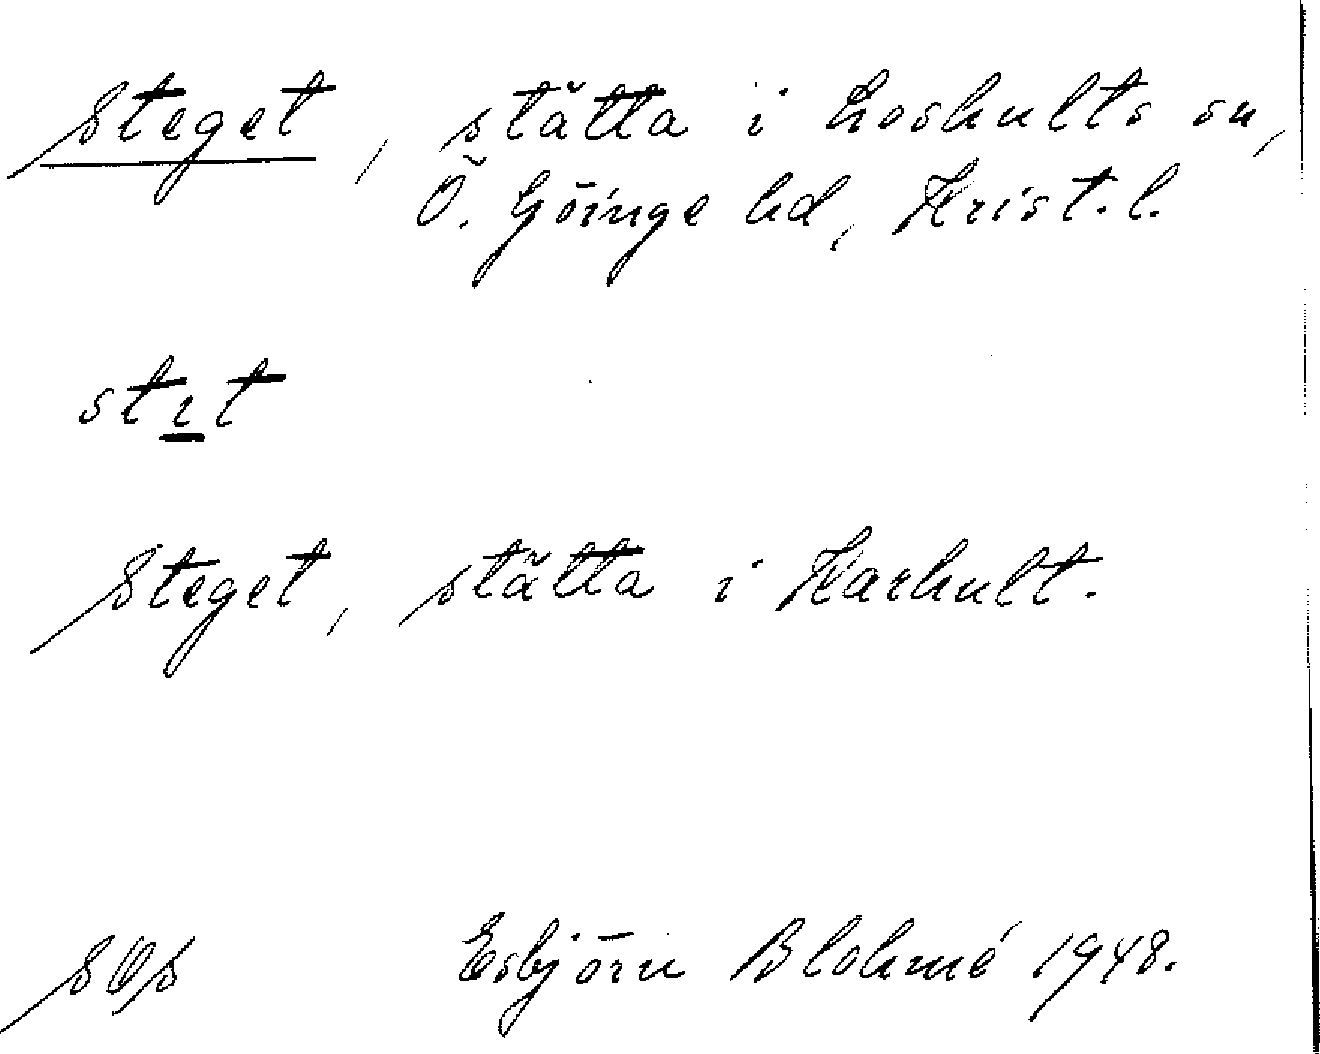 Steget, stätta i Loshults sn,
Ö. Göinge hd, Krist. l.
stıt
Steget, stätta i Karhult.
SOS Esbjörn Blohmé 1948.